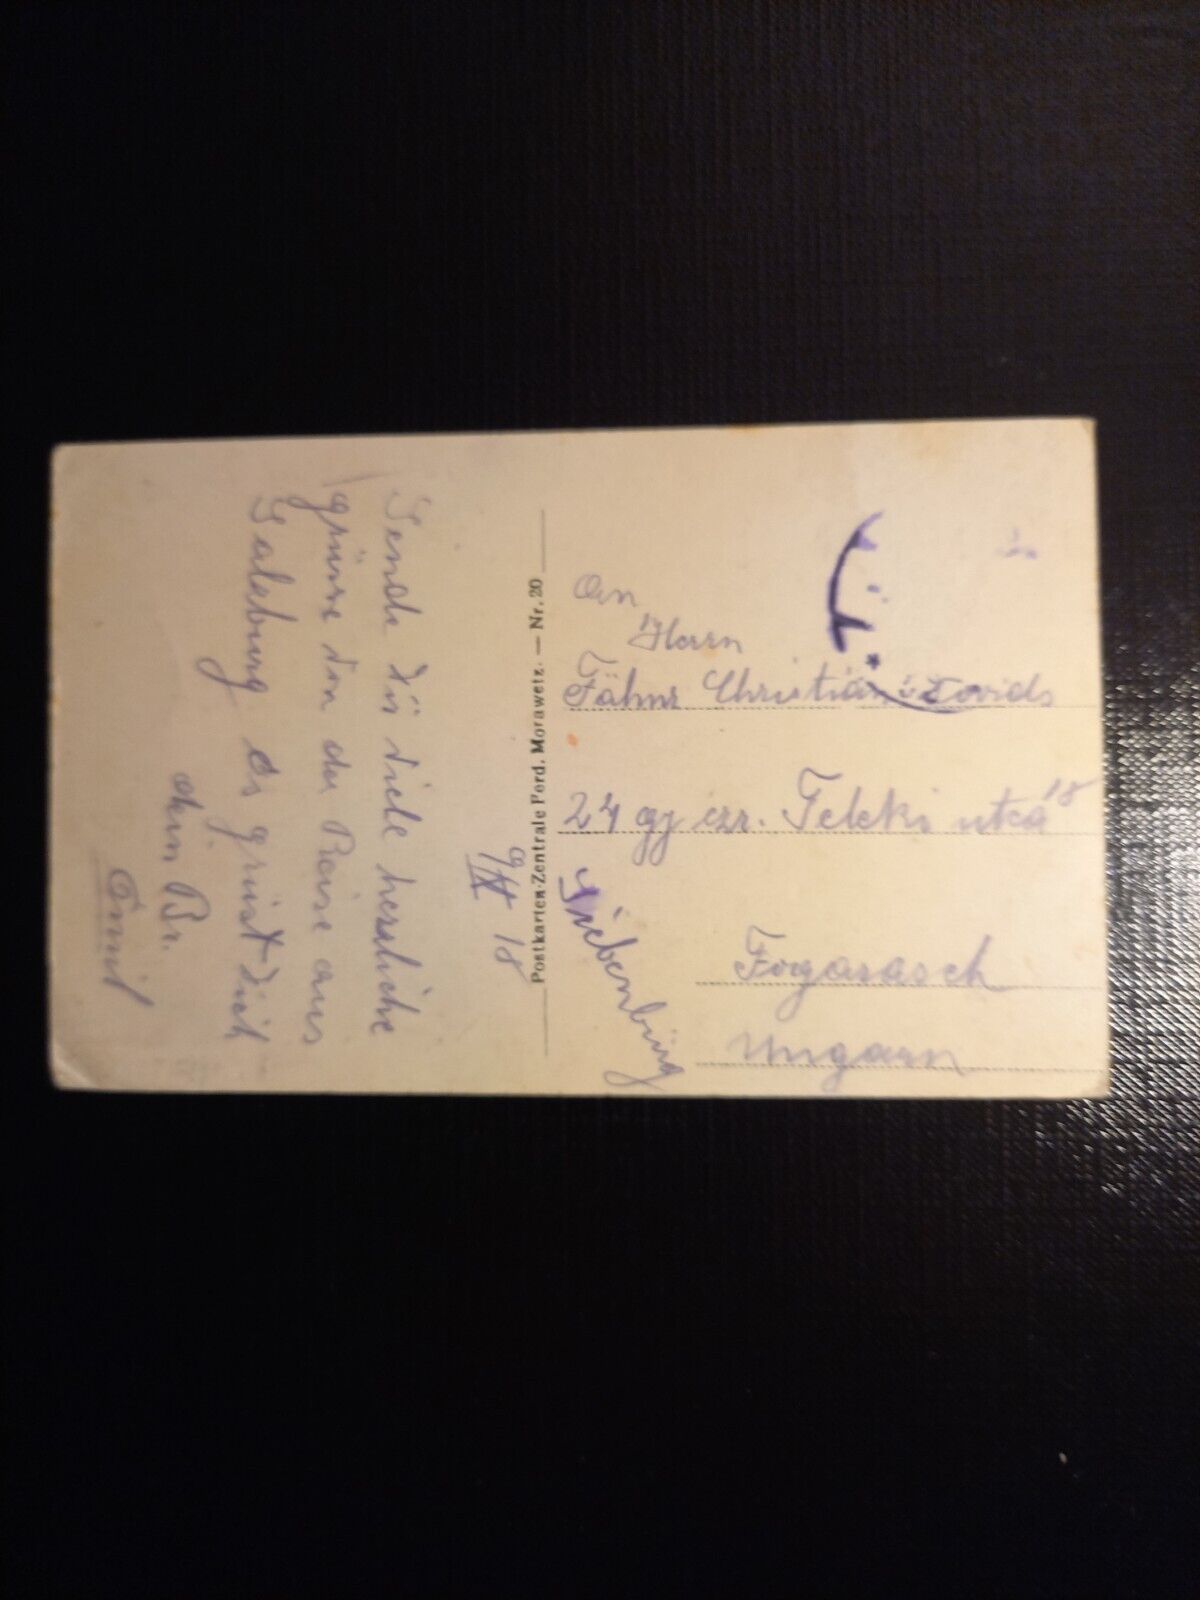 Sende Dir viele herzliche
grüsse von der Reise aus
Salzburg es grüsst Dich
dein Br.
Emil
9/IX 18
Postkarten-Zentrale Ferd. Morawetz. — Nr. 20
An
Herrn
Fähnr Christian
24 gy ezr. Teleki utca 18
Fogarasch
Ungarn
Siebenbürg